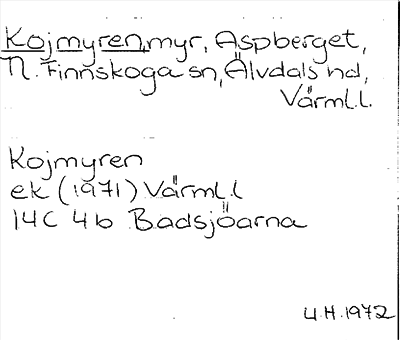 Kojmyren, myr, Aspberget,
N. Finnskoga sn, Älvdals hd,
Värml. l.
Kojmyren
ek (1971) Värml. l
14C 4b Badsjöarna
U.H. 1972